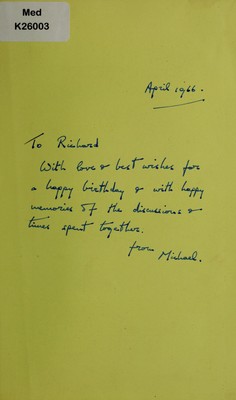 Med
K26003
April 1966.
To Richard
With love & best wishes for
a happy birthday & with happy
memories of the discussions &
times spent together.
from
Michael.